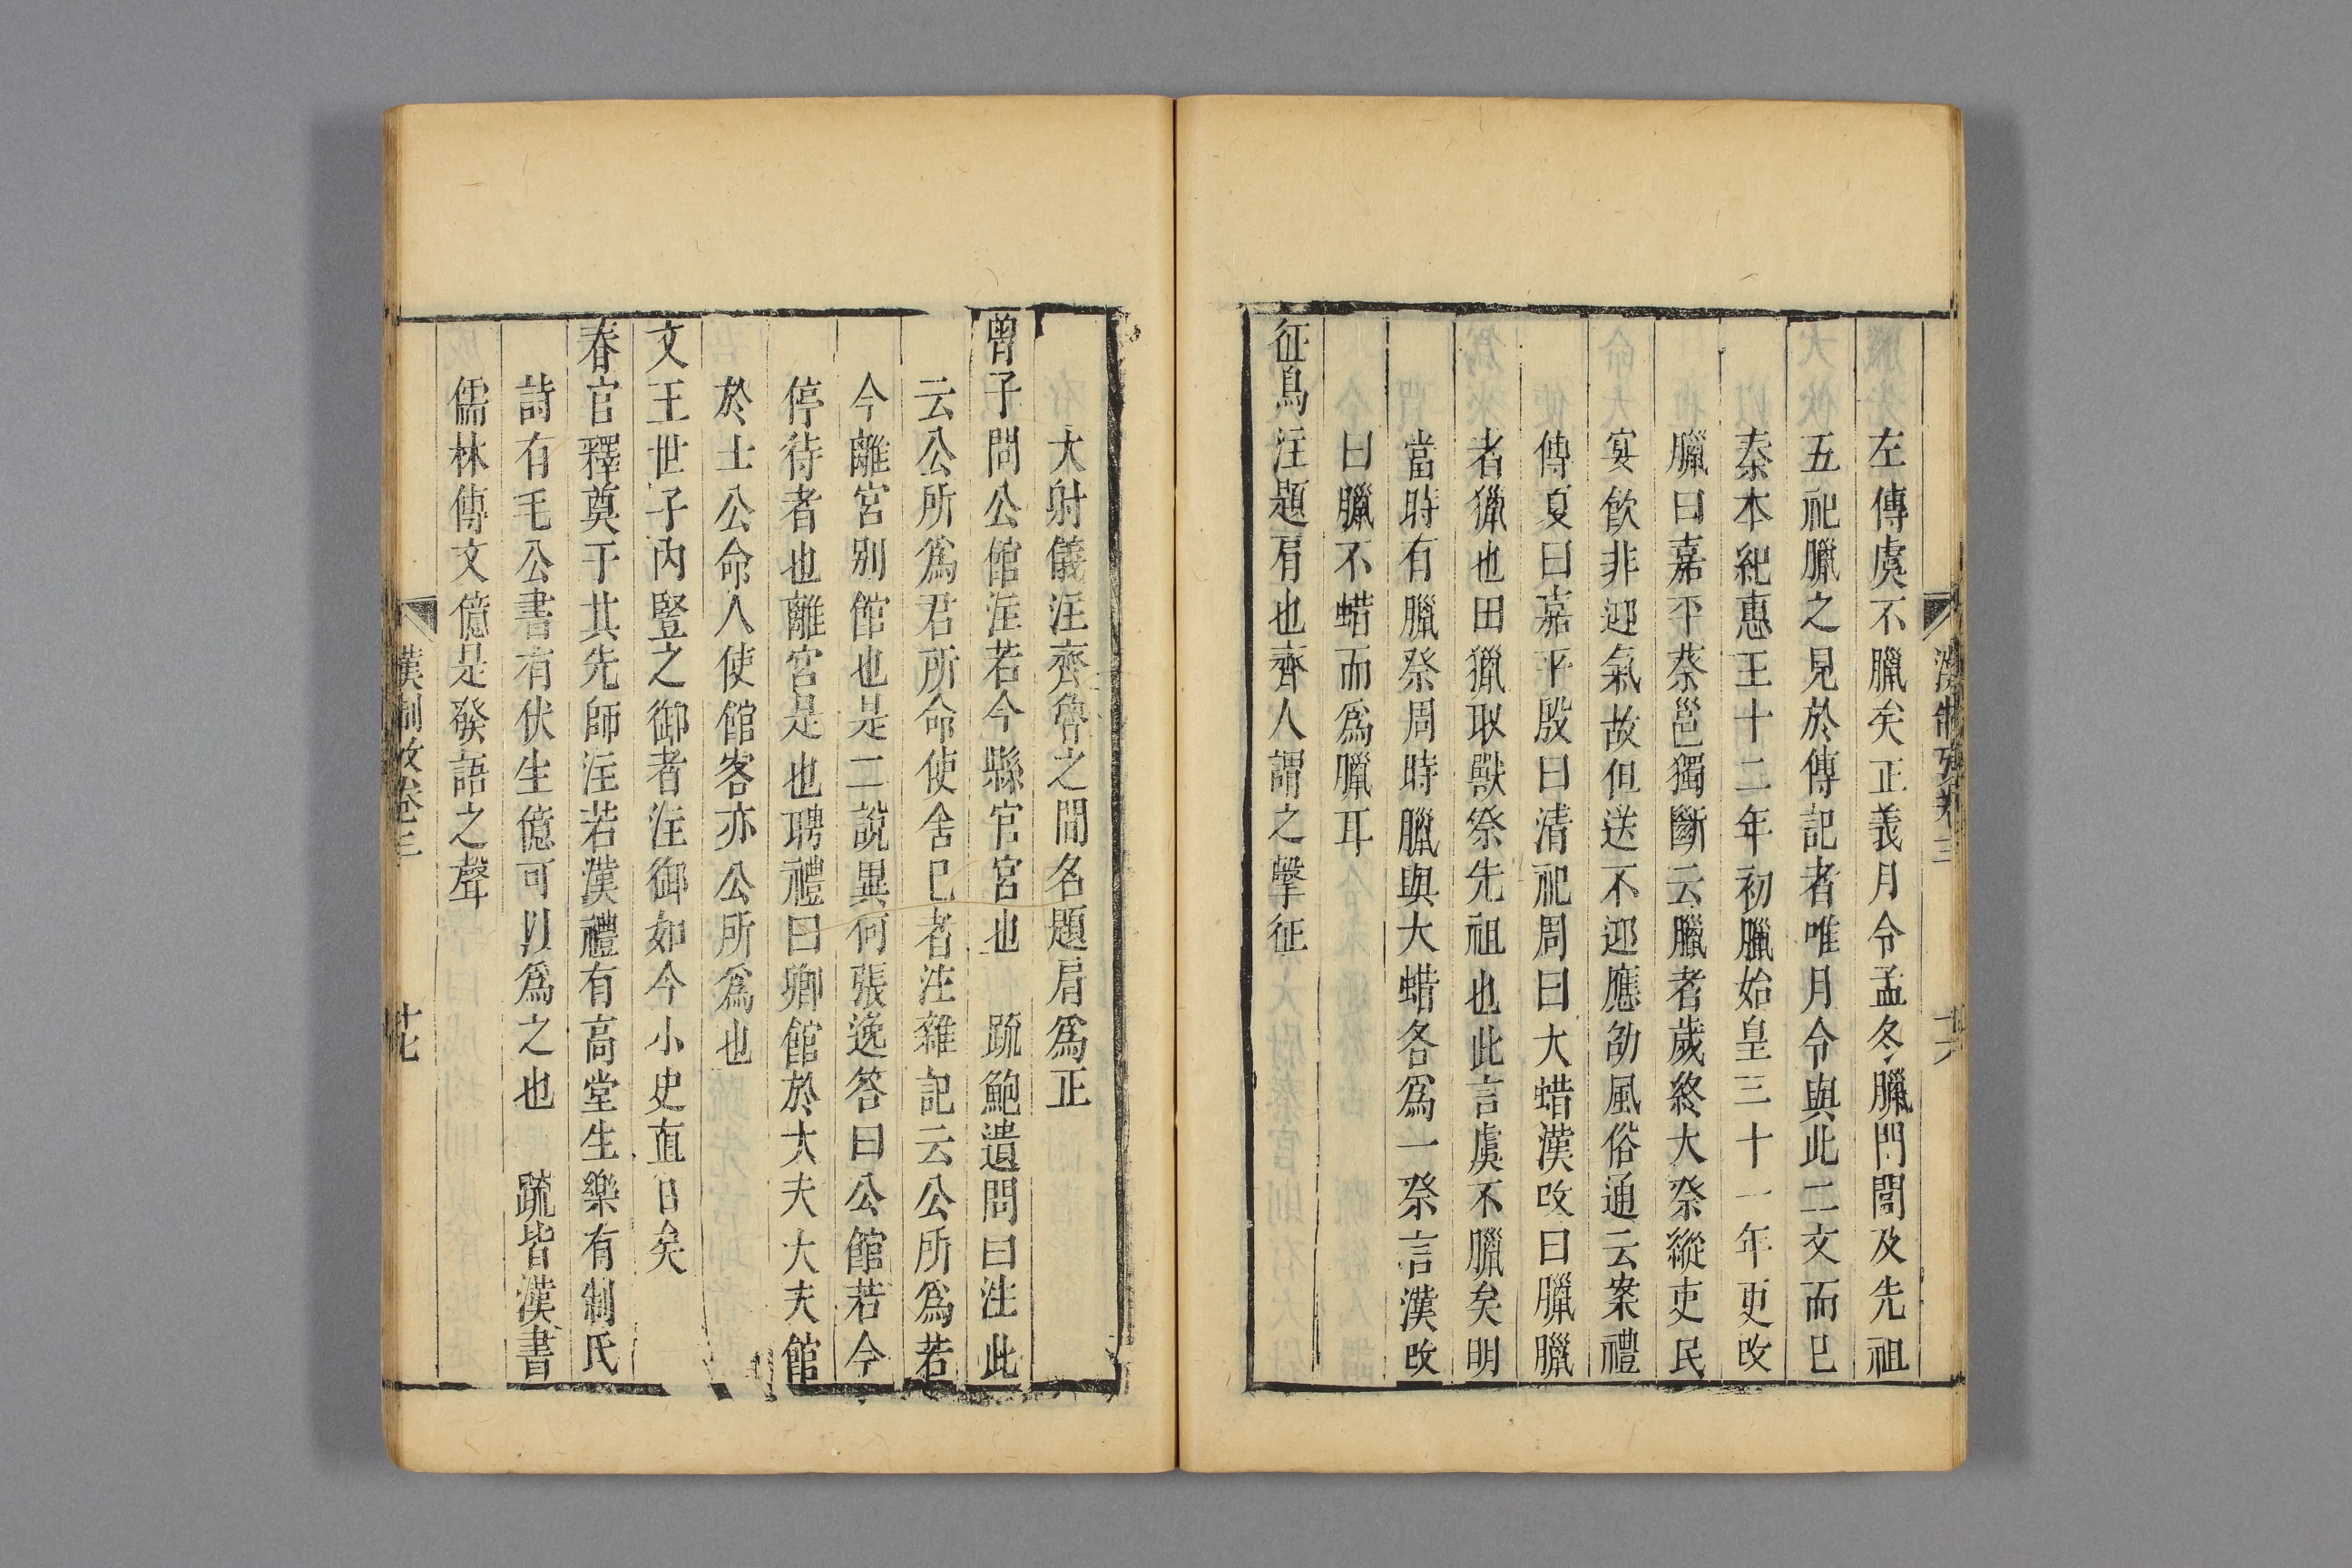 漢制攷卷三
十六
左傳虞不臘矣正義月令孟冬臘門閭及先祖
五祀臘之見於傳記者唯月令與此二文而已
秦本紀惠王十二年初臘始皇三十一年更改
臘曰嘉平蔡邕獨斷云臘者歲終大祭縱吏民
宴飲非迎氣故但送不迎應劭風俗通云案禮
傳夏曰嘉平殷曰清祀周曰大蜡漢改曰臘臘
者獵也田獵取獸祭先祖也此言虞不臘矣明
當時有臘祭周時臘與大蜡各爲一祭言漢改
曰臘不蜡而爲臘耳
征鳥注題肩也齊人謂之擊征
大射儀注齊魯之間名題肩爲正
曾子問公館注若今縣官宮也　疏鮑遺問曰注此
云公所爲君所命使舍已者注雜記云公所爲若
今離宮别館也是二說異何張逸答曰公館若今
停待者也離宮是也聘禮曰卿館於大夫大夫館
於士公命人使館客亦公所爲也
文王世子内豎之御者注御如今小史直日矣
春官釋奠于其先師注若漢禮有高堂生樂有制氏
詩有毛公書有伏生億可以爲之也　疏皆漢書
儒林傳文億是發語之聲
漢制攷卷三